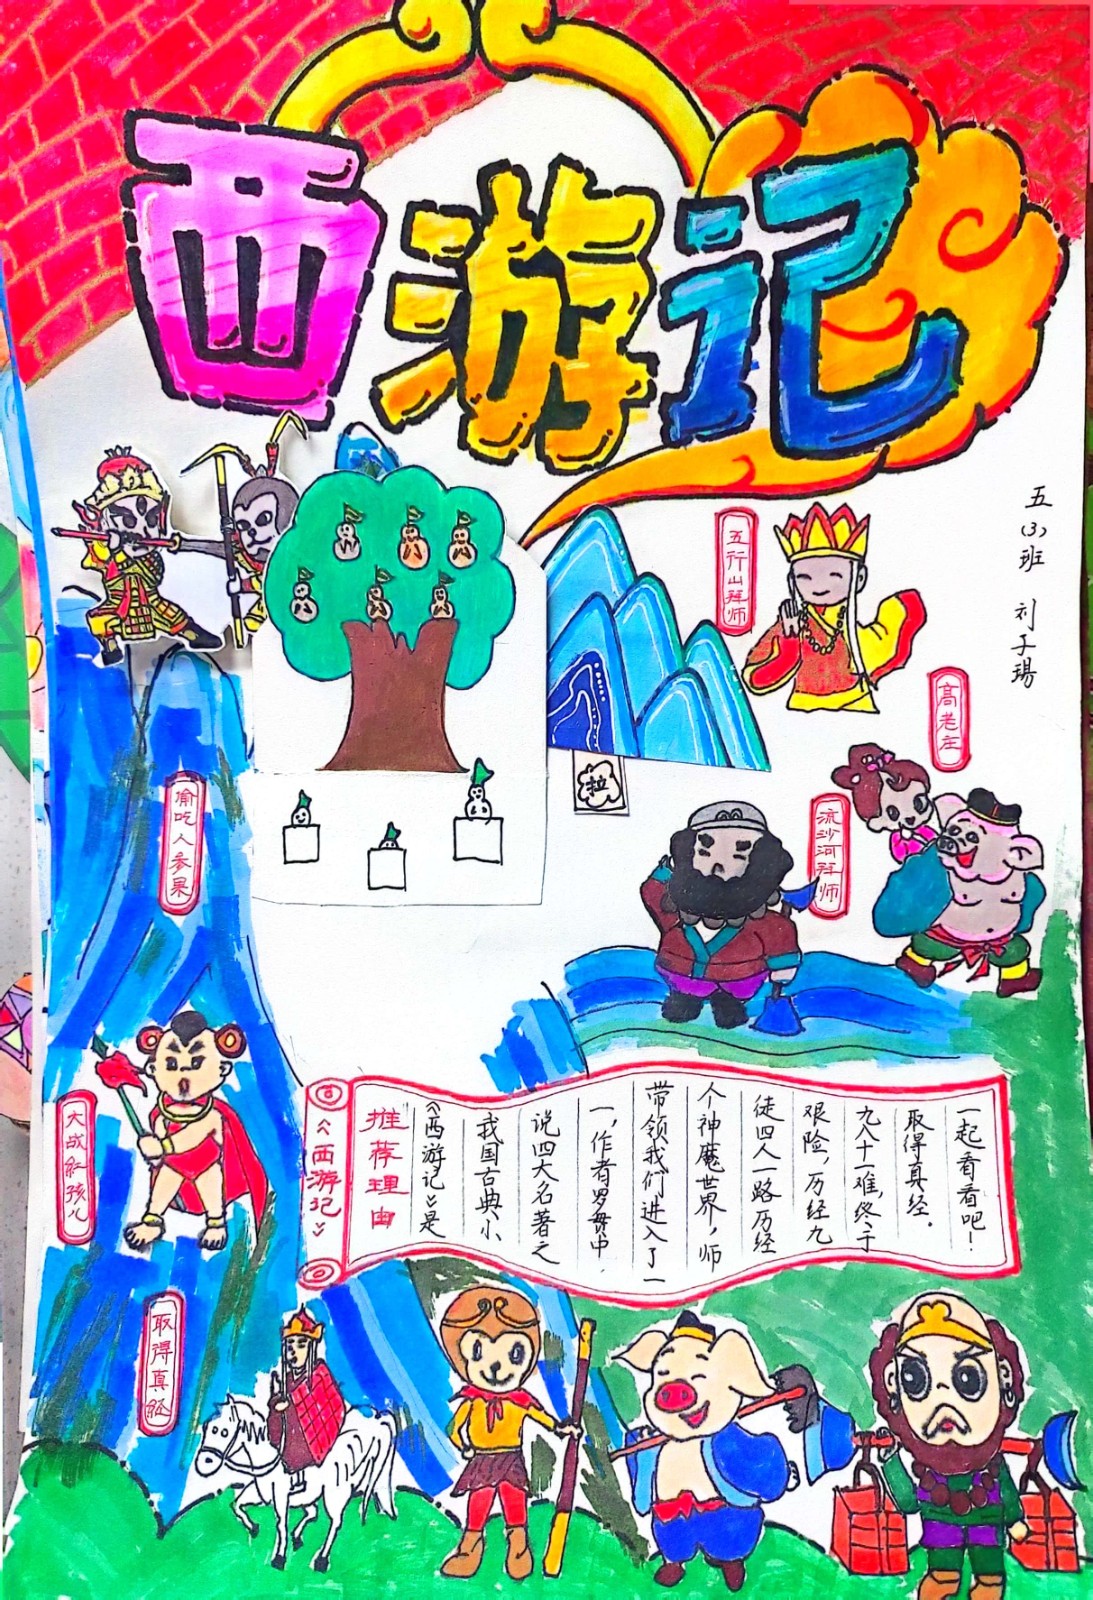 西游记
五(3)班 刘子
五行山拜师
高老庄
流沙河拜师
拉
偷吃人参果
大战紅孩儿
取得真经
《西游记》
推荐理由
《西游记》是
我国古典小
说四大名著之
一,作者罗贯中.
带领我们进入了一
个神魔世界,师
徒四人一路历经
艰险,历经九
九八十一难,终于
取得真经.
一起看看吧!